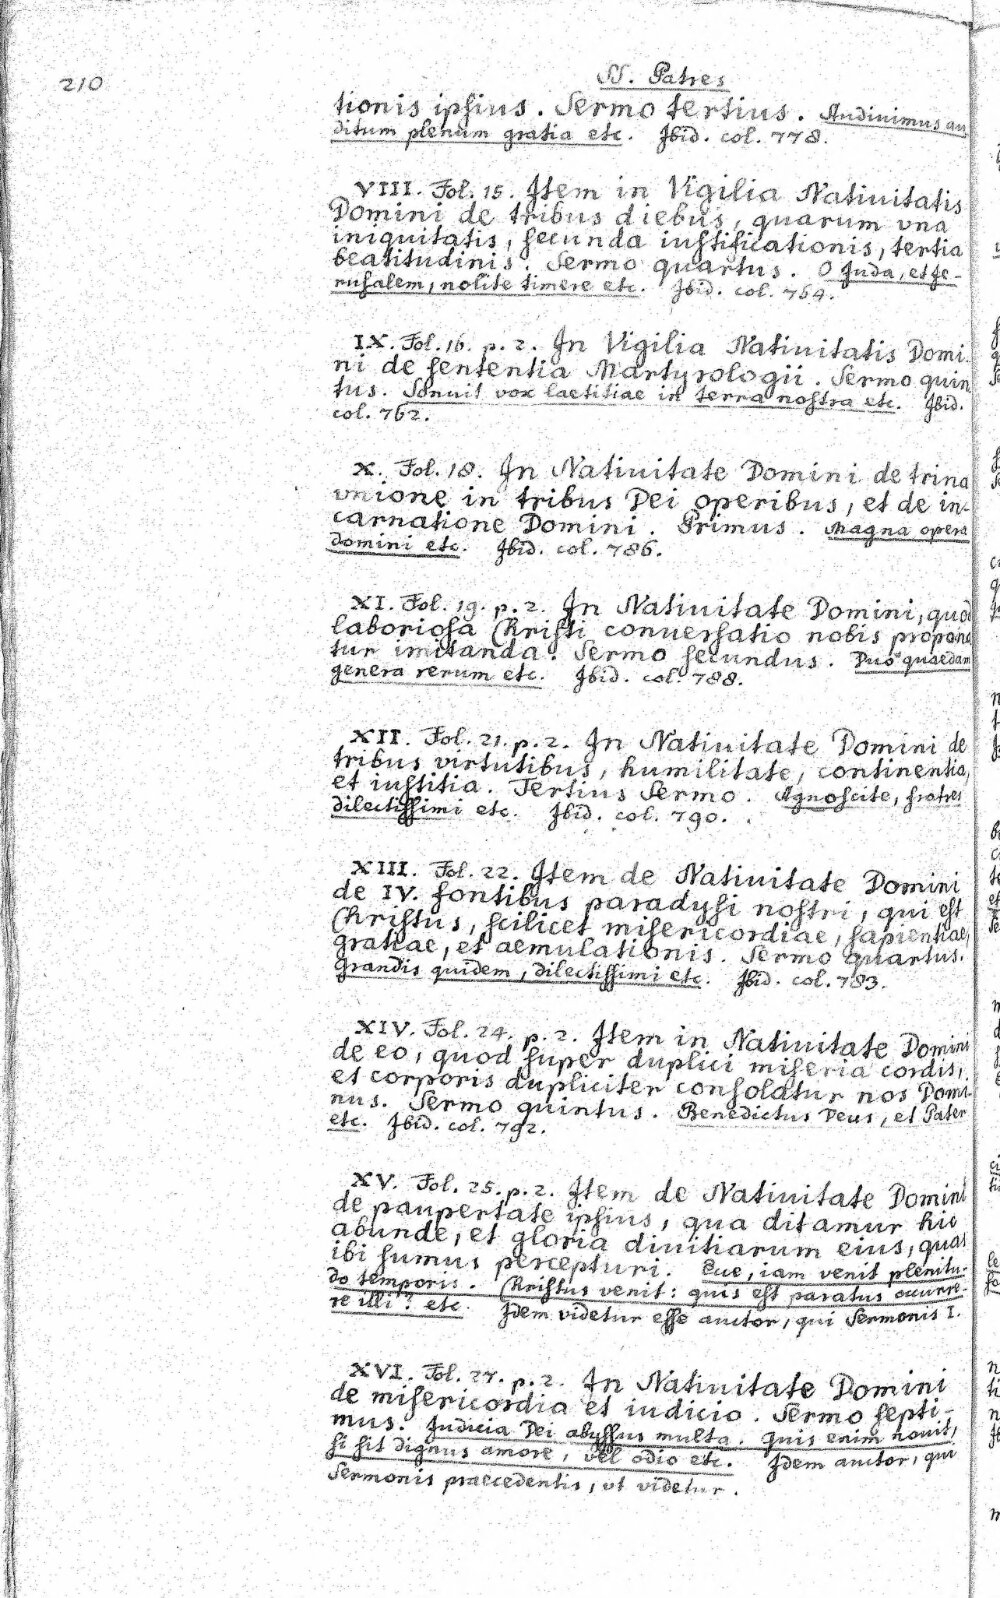 210
SS. Patres
tionis ipsius. Sermo tertius. Audiuimus au
ditum plenum gratia etc. Ibid. col. 778.
VIII. Fol. 15. Item in Vigilia Natiuitatis
Domini de tribus diebus, quarum vna
iniquitatis, secunda iustificationis, tertia
beatitudinis. Sermo quartus. O Juda, et Je-
rusalem, nolite timere etc. Ibid. col. 764.
IX. Fol. 16. p. 2. In Vigilia Natiuitatis Domi-
ni de sententia Martyrologii. Sermo quin
tus. Sonuit vox laetitiae in terra nostra etc. Ibid.
col. 762.
X. Fol. 18. In Natiuitate Domini de trina
vnione in tribus Dei operibus, et de in-
carnatione Domini. Primus. Magna opera
domini etc. Ibid. col. 786.
XI. Fol. 19. p. 2. In Natiuitate Domini, quod
laboriosa Christi conuersatio nobis propona
tur imitanda. Sermo secundus. Duo quaedam
genera rerum etc. Ibid. col. 788.
XII. Fol. 21. p. 2. In Natiuitate Domini de
tribus virtutibus, humilitate, continentia,
et iustitia. Tertius Sermo. Agnoscite, fratres
dilectissimi etc. Ibid. col. 790.
XIII. Fol. 22. Item de Natiuitate Domini
de IV. fontibus paradysi nostri, qui est
Christus, scilicet misericordiae, sapientiae,
gratiae, et aemulationis. Sermo quartus.
Grandis quidem, dilectissimi etc. Ibid. col. 783.
XIV. Fol. 24. p. 2. Item in Natiuitate Domini
de eo, quod super duplici miseria cordis,
et corporis dupliciter consolatur nos Domi-
nus. Sermo quintus. Benedictus Deus, et Pater
etc. Ibid. col. 792.
XV. Fol. 25. p. 2. Item de Natiuitate Domini
de paupertate ipsius, qua ditamur hic
abunde, et gloria diuitiarum eius, quas
ibi sumus percepturi. Ecce, iam venit plenitu-
do temporis. Christus venit: quis est paratus occurre-
re illi? etc. Idem videtur esse auctor, qui Sermonis I.
XVI. Fol. 27. p. 2. In Natiuitate Domini
de misericordia et iudicio. Sermo septi-
mus. Judicia Dei abyssus multa. Quis enim nouit,
si sit dignus amore, vel odio etc. Idem auctor, qui
Sermonis praecedentis, vt videtur.